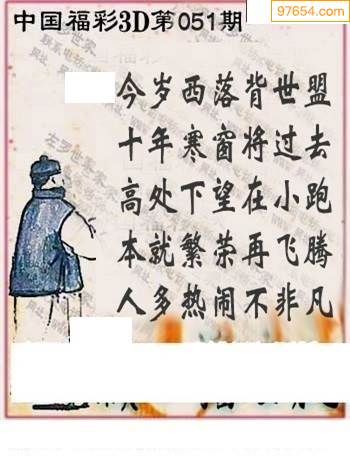 中国福彩3D第051期
97654.com
今岁西落背世盟
十年寒窗将过去
高处下望在小跑
本就繁荣再飞腾
人多热闹不非凡